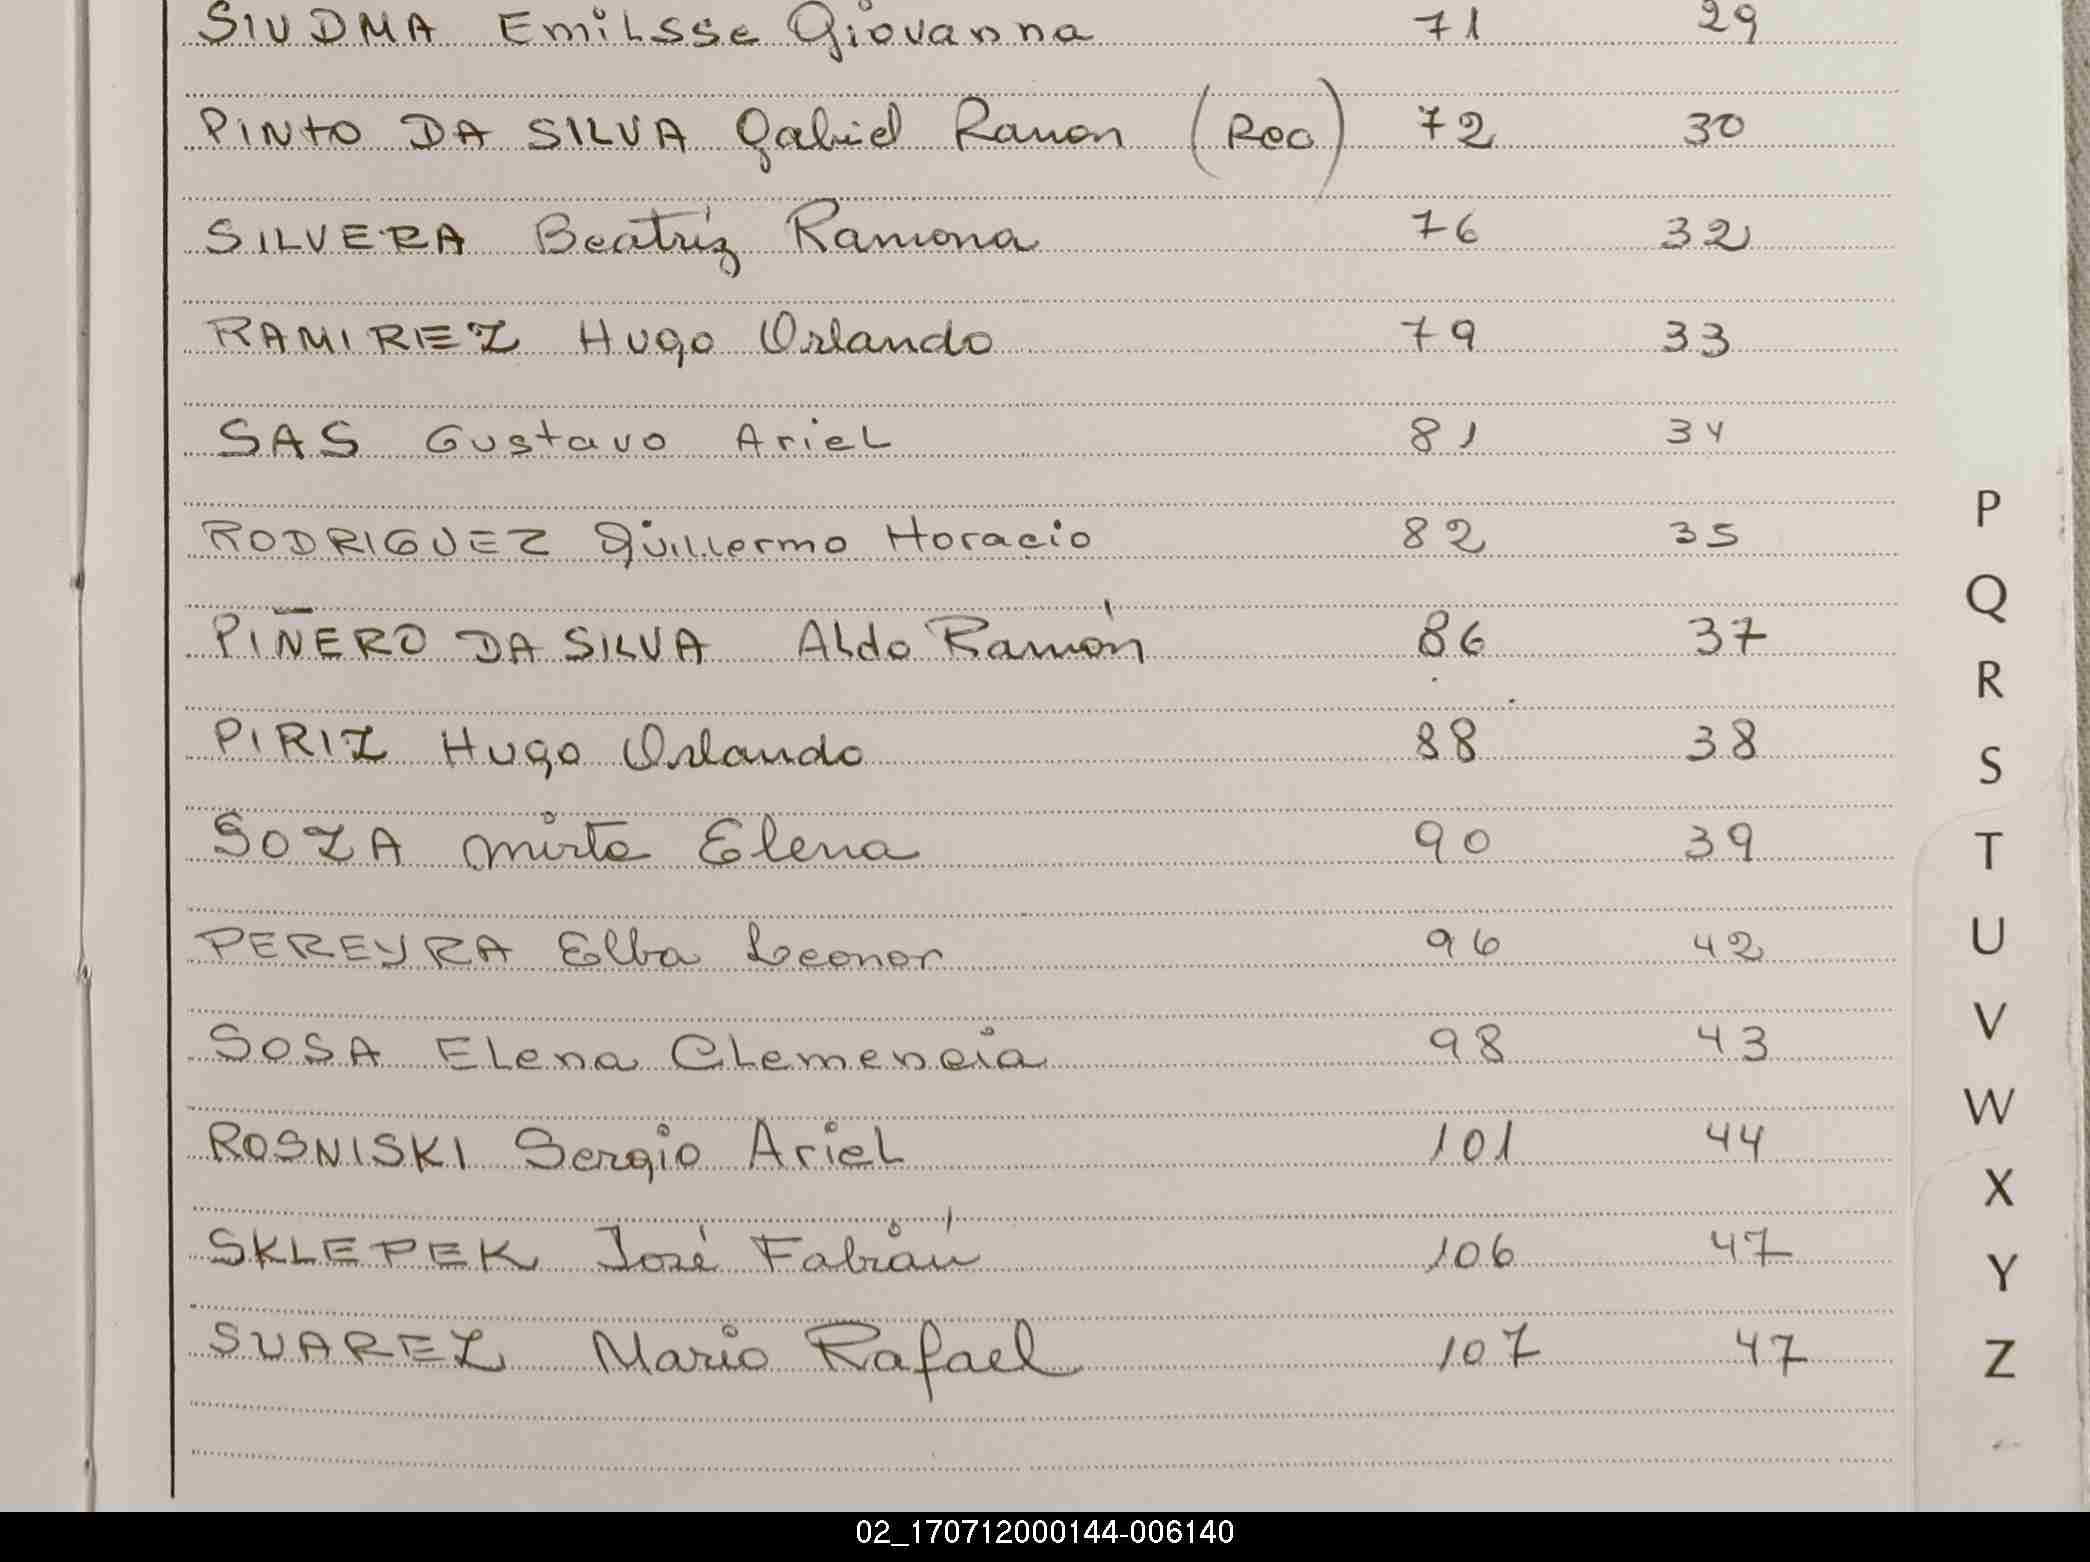 SIUDMA Emilsse Giovanna 71 29
PINTO DA SILVA Gabriel Ramon (Rec) 72 30
SILVERA Beatriz Ramona 76 32
RAMIREZ Hugo Orlando 79 33
SAS Gustavo Ariel 81 34
RODRIGUEZ Guillermo Horacio 82 35
PIÑERO DA SILVA Aldo Ramón 86 37
PIRIZ Hugo Orlando 88 38
SOZA Mirta Elena 90 39
PEREYRA Elba Leonor 96 42
SOSA Elena Clemencia 98 43
ROSNISKI Sergio Ariel 101 44
SKLEPEK José Fabián 106 47
SUAREZ Mario Rafael 107 47
P
Q
R
S
T
U
V
W
X
Y
Z
02_170712000144-006140